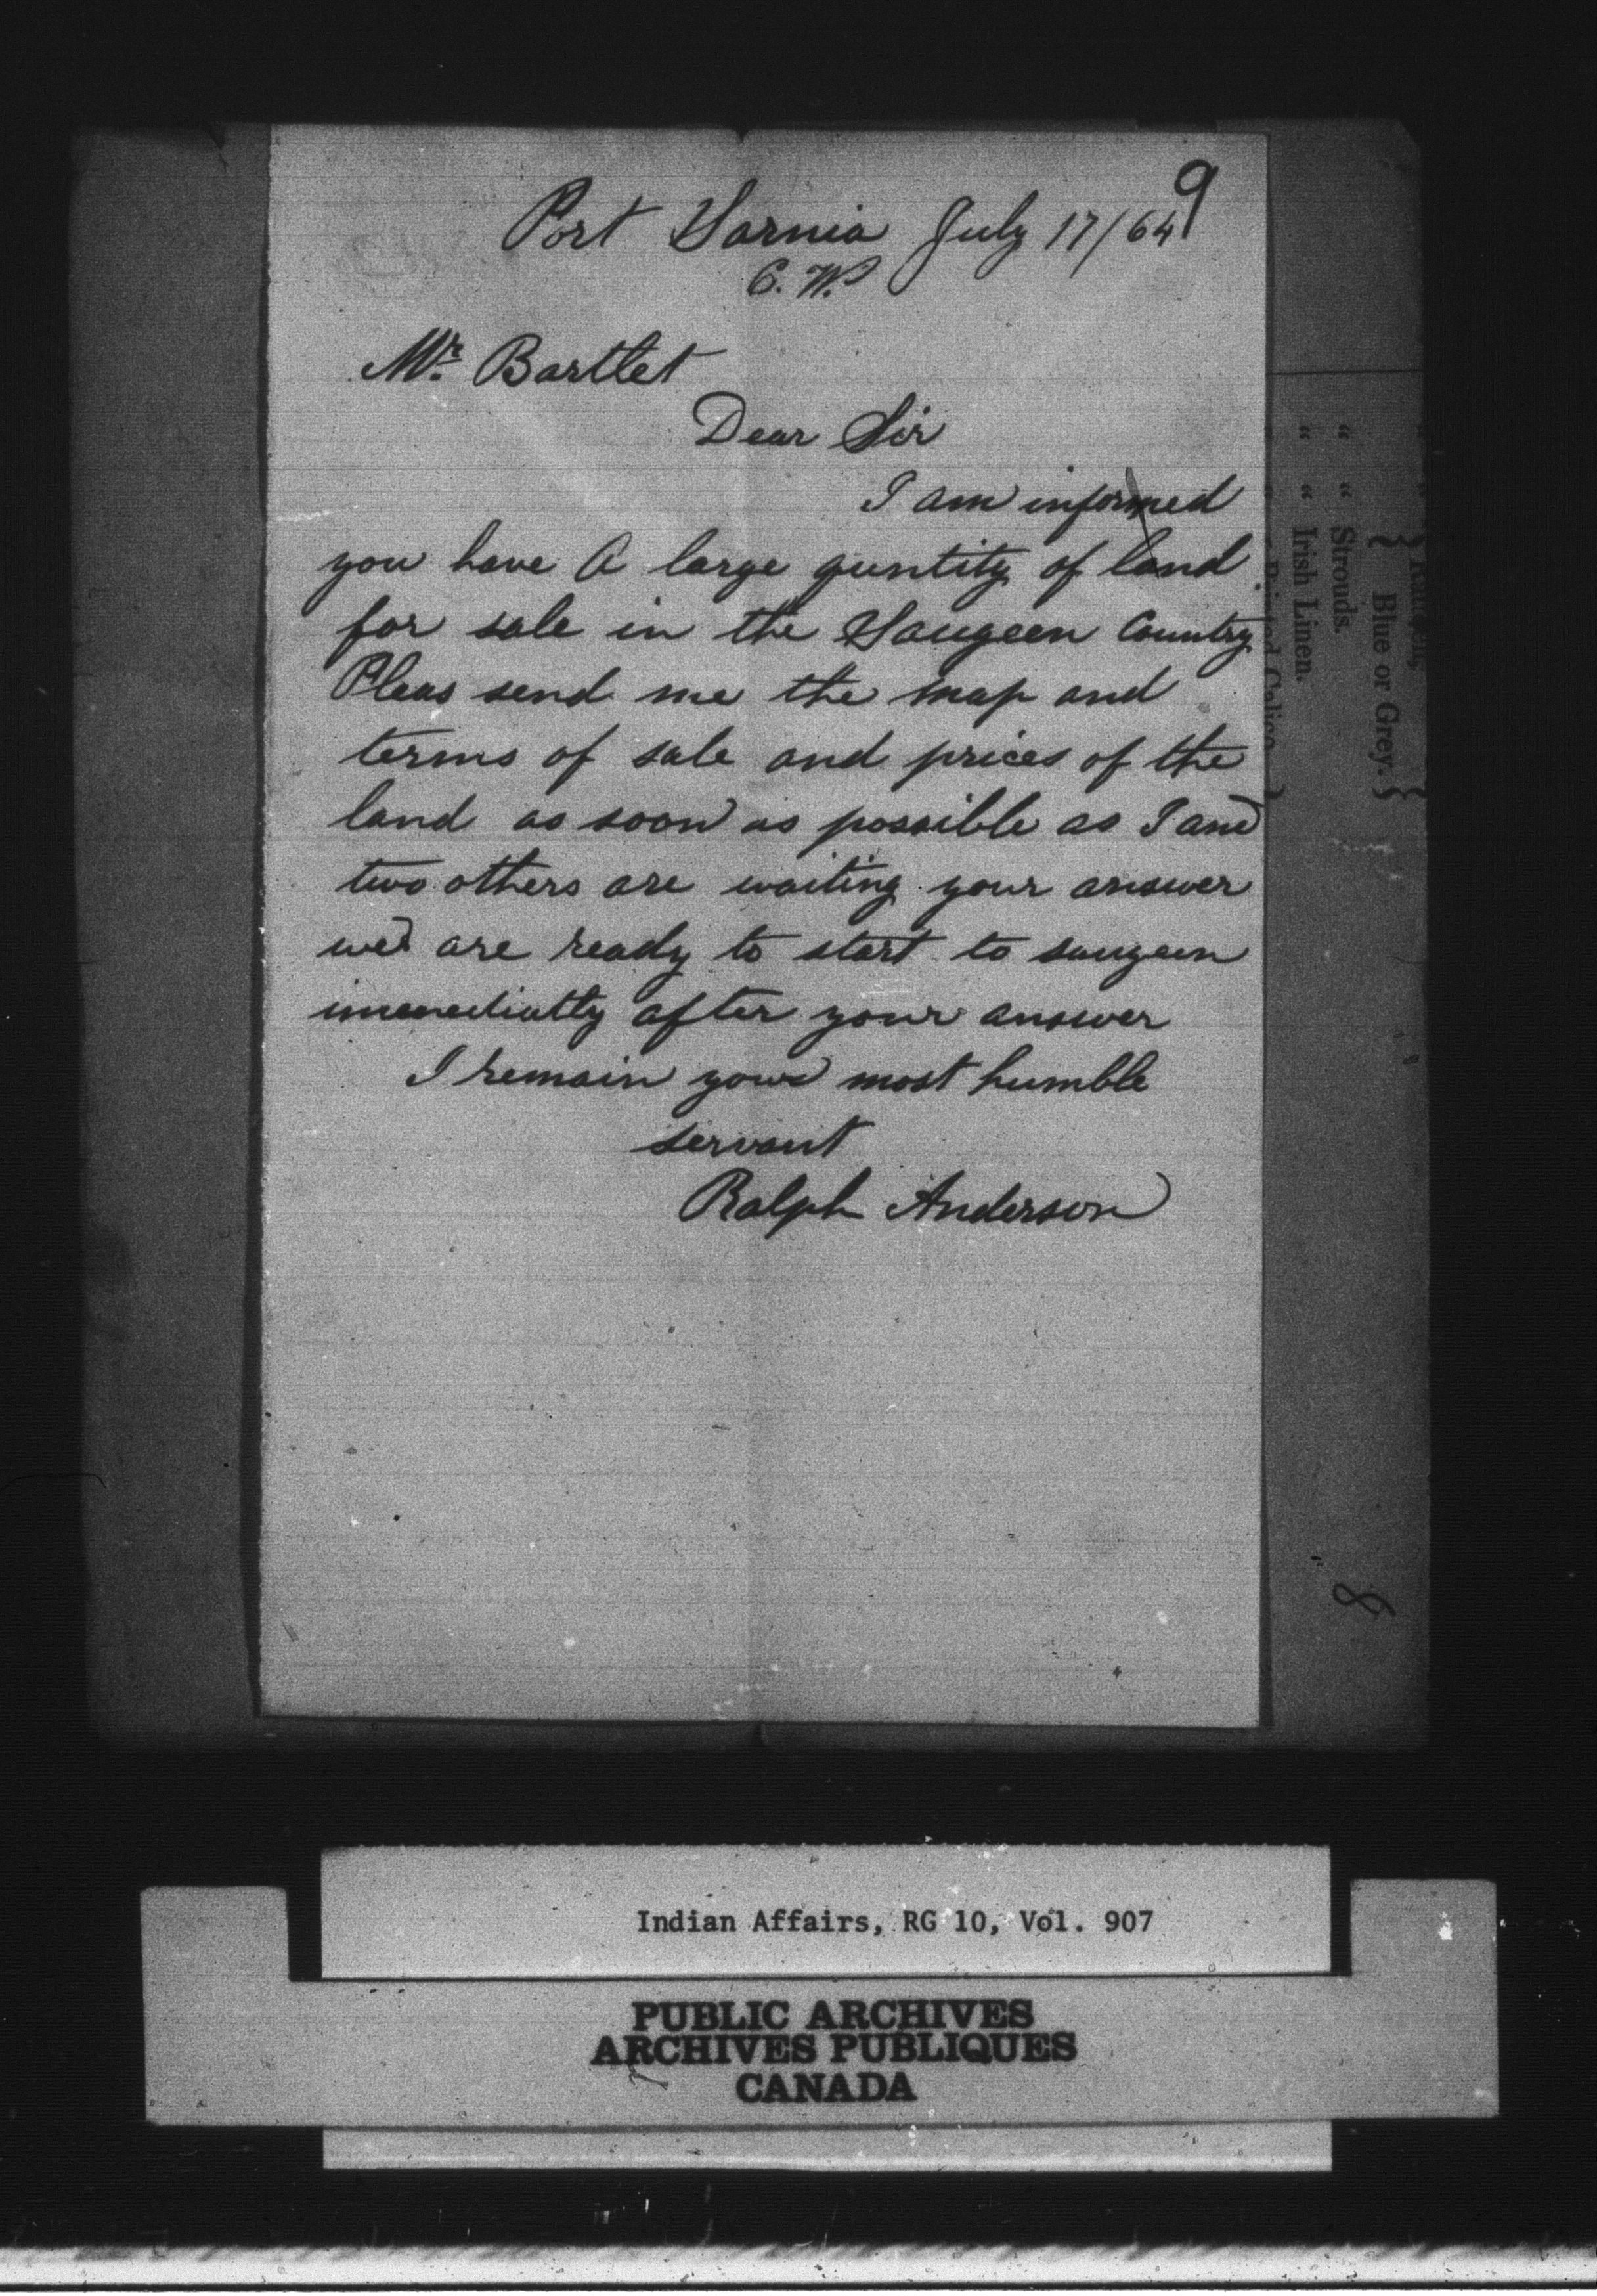 9
Port Sarnia July 17/64
C. W.
Mr. Bartlet
Dear Sir
I am informed
you have A large quntity of land
for sale in the Saugeen Country
Pleas send me the map and
terms of sale and prices of the
land as soon as possible as I and
two others are waiting your answer
we are ready to start to saugeen
immediatly after your answer
I remain your most humble
servant
Ralph Anderson
Blue or Grey.
" " Strouds.
" " Irish Linen.
8
Indian Affairs, RG 10, Vol. 907
PUBLIC ARCHIVES
ARCHIVES PUBLIQUES
CANADA